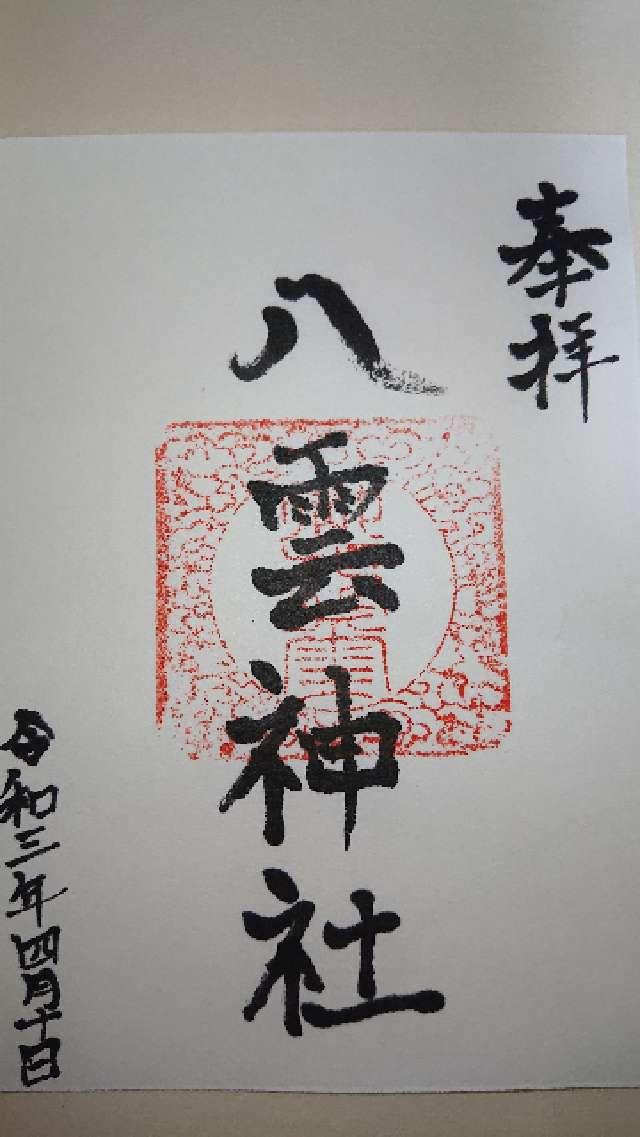 奉拝
八雲神社
令和三年四月十日